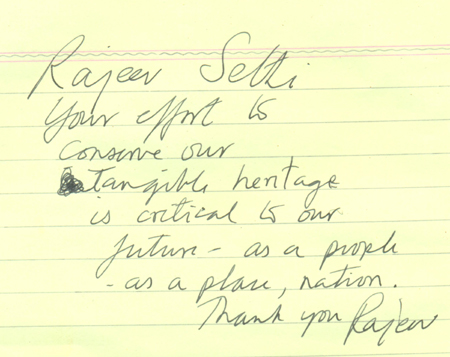 Rajeev Sethi
Your effort to
conserve our
tangible heritage
is critical to our
future - as a people
- as a place, nation.
Thank you Rajeev